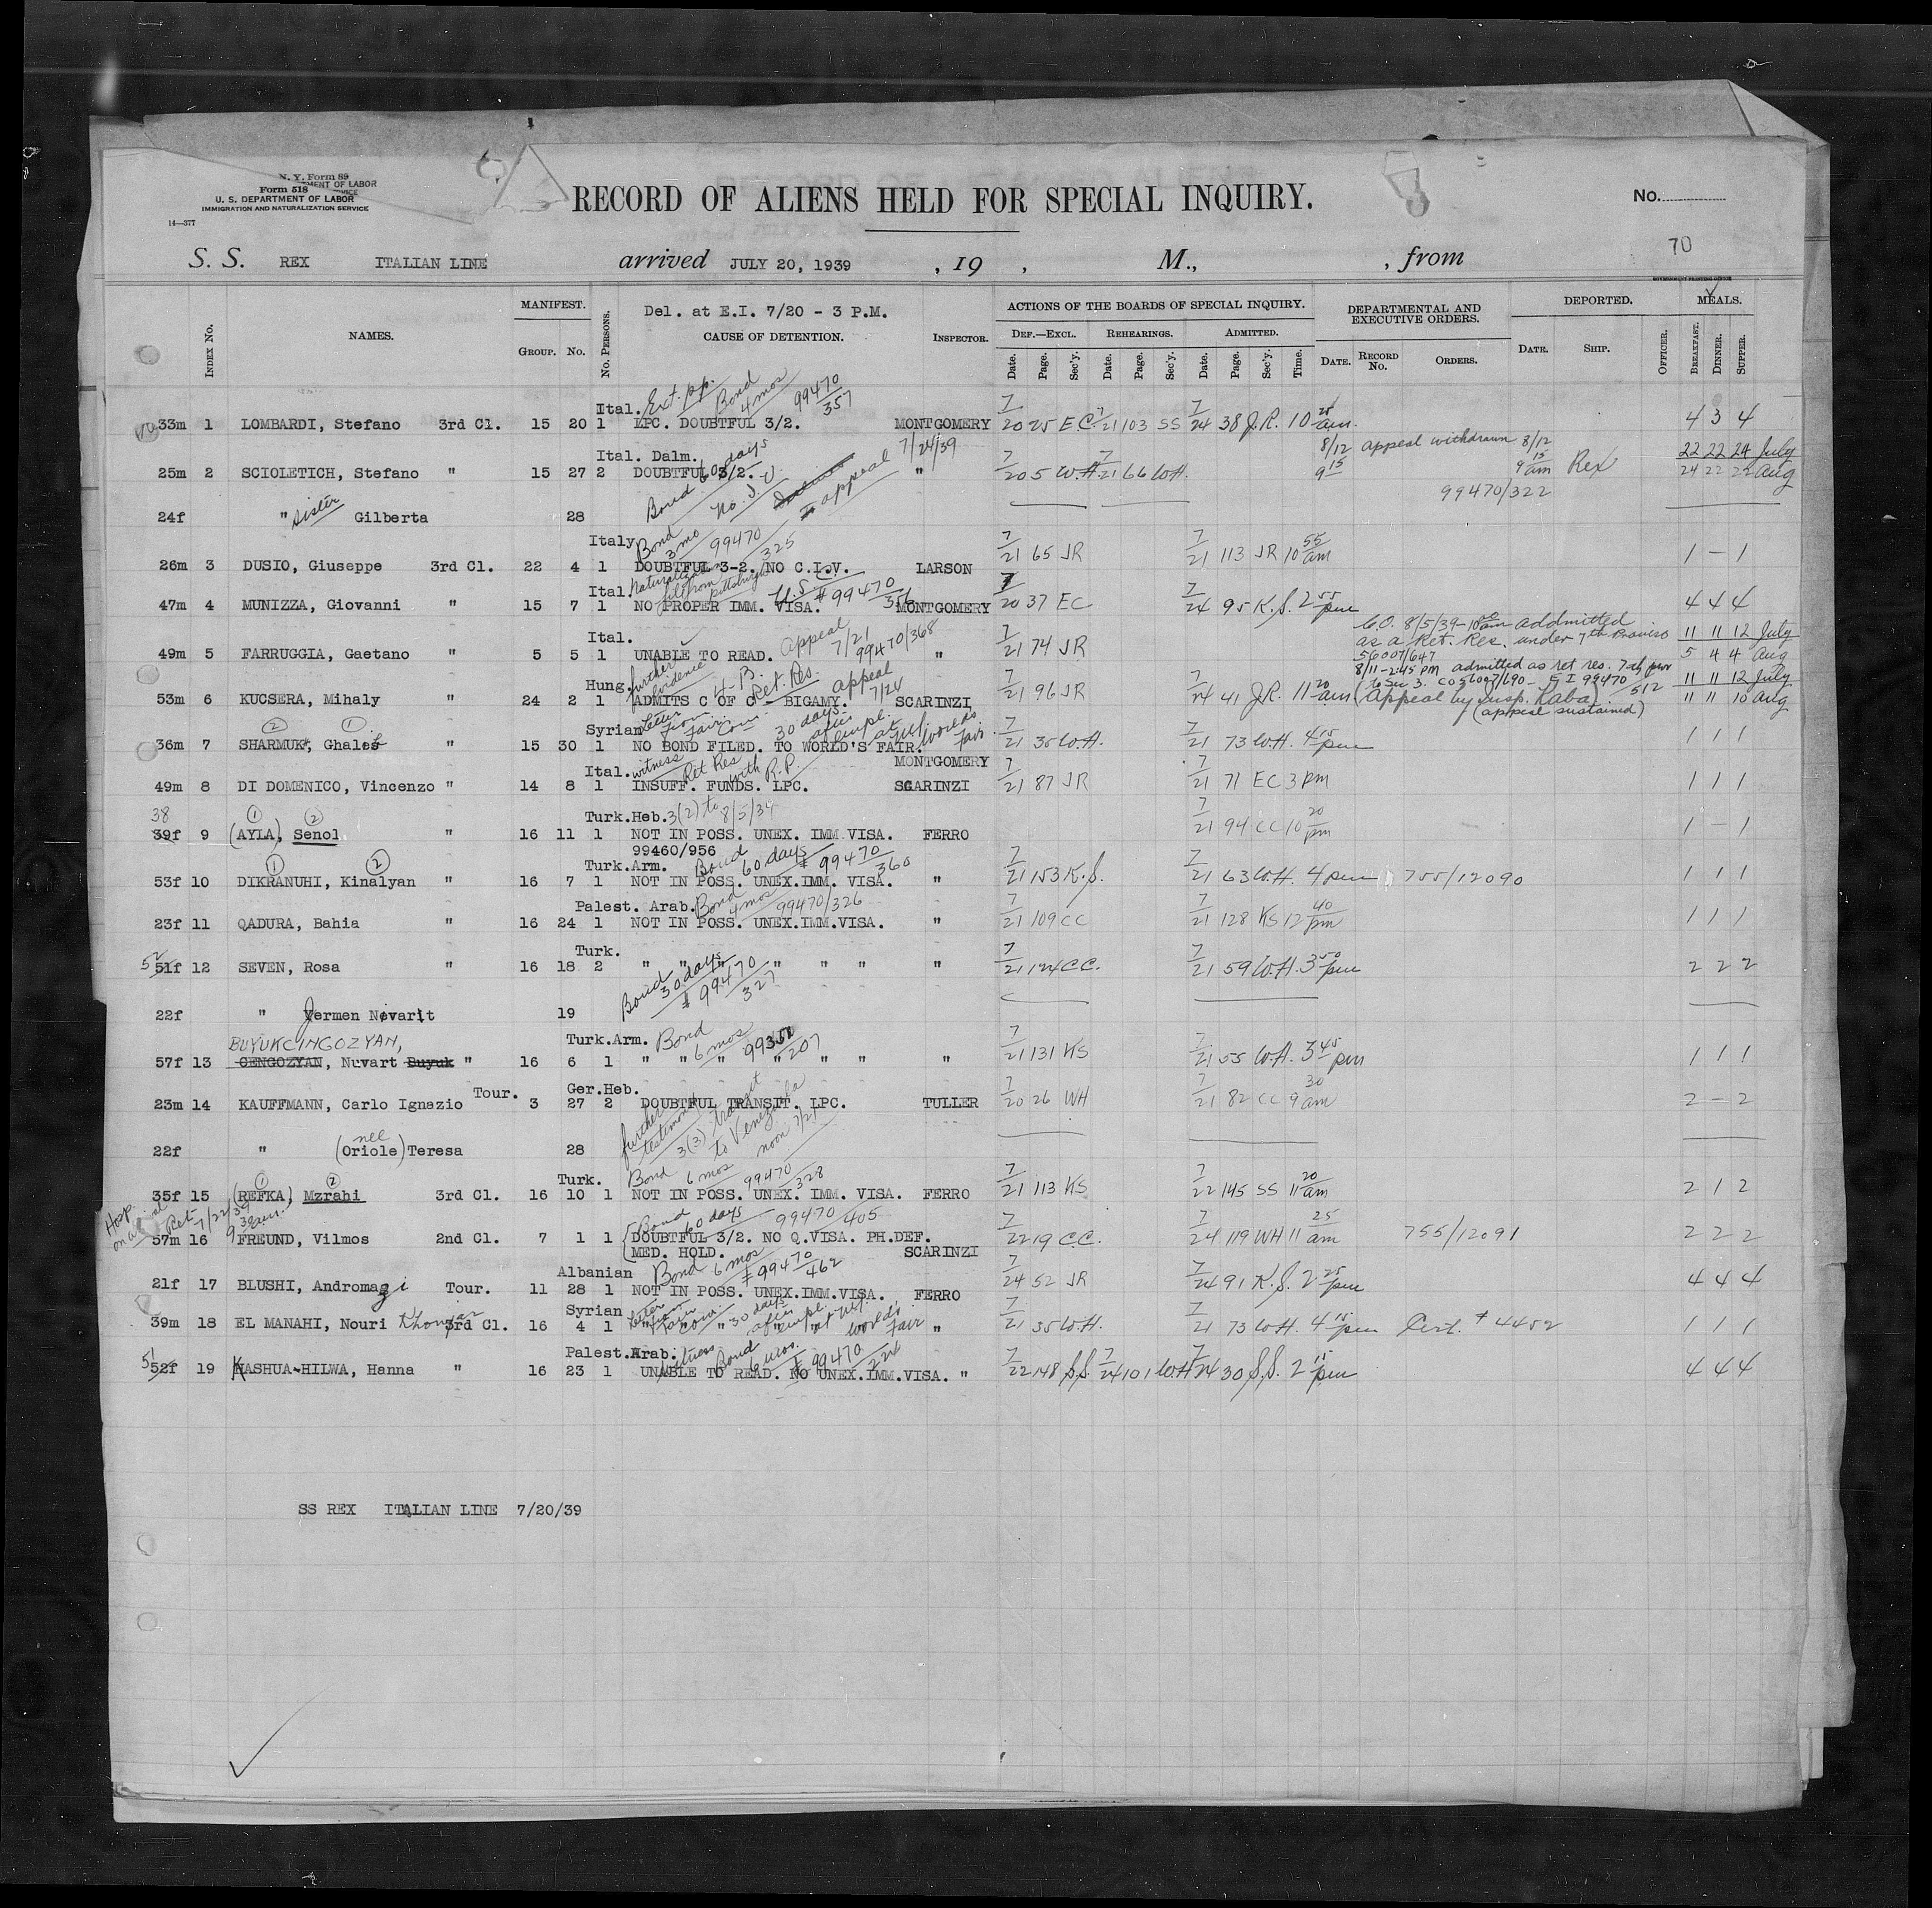 N. Y. Form 89
Form 518
U. S. DEPARTMENT OF LABOR
IMMIGRATION AND NATURALIZATION SERVICE
14—377
RECORD OF ALIENS HELD FOR SPECIAL INQUIRY.
No.
70
S. S. REX ITALIAN LINE arrived JULY 20, 1939, 19 , M., , from
Index No. NAMES. MANIFEST. Group. No. No. Persons. Del. at E.I. 7/20 - 3 P.M. CAUSE OF DETENTION. Inspector.
ACTIONS OF THE BOARDS OF SPECIAL INQUIRY. Def.—Excl. Date. Page. Sec'y. Rehearings. Date. Page. Sec'y. Admitted. Date. Page. Sec'y. Time.
DEPARTMENTAL AND EXECUTIVE ORDERS. Date. Record No. Orders. DEPORTED. Date. Ship. Officer. MEALS. Breakfast. Dinner. Supper.
Ital. Ext. pp. Bond 4 mos 99470/357
33m 1 LOMBARDI, Stefano 3rd Cl. 15 20 1 LPC. DOUBTFUL 3/2. MONTGOMERY 7/20 25 E.C. 7/21 103 SS 7/24 38 J.R. 10 25 am. 4 3 4
Ital. Dalm. 60 days 7/24/39 8/12 appeal withdrawn 8/12 22 22 24 July
25m 2 SCIOLETICH, Stefano " 15 27 2 DOUBTFUL 3/2. " 7/20 5 W.H. 7/21 66 W.H. 9 15 9 15 am Rex 24 22 22 Aug
Bond No. appeal 99470/322
24f " sister Gilberta 28
Italy Bond 3 mo 99470/325
26m 3 DUSIO, Giuseppe 3rd Cl. 22 4 1 DOUBTFUL 3-2. NO C.I.V. LARSON 7/21 65 JR 7/21 113 JR 10 55 am 1 — 1
Ital. Naturalization from Pittsburgh U.S.C. # 99470/356
47m 4 MUNIZZA, Giovanni " 15 7 1 NO PROPER IMM. VISA. MONTGOMERY 7/20 37 EC 7/24 95 K.S. 2 55 pm 4 4 4
Ital. Appeal 7/21 99470/368 C.O. 8/5/39 - 10 am addmitted as a Ret. Res. under 7th Proviso 11 11 12 July
49m 5 FARRUGGIA, Gaetano " 5 5 1 UNABLE TO READ. " 7/21 74 JR 56007/647 5 4 4 Aug
Hung. further evidence Ret. Res. appeal 7/24 8/11 - 2:45 PM admitted as ret res. 7th prov to Sec 3. CO 56007/690 - E I 99470/512 11 11 12 July
53m 6 KUCSERA, Mihaly " 24 2 1 ADMITS C OF C - BIGAMY. SCARINZI 7/21 96 JR 7/24 41 J.R. 11 20 am (Appeal by Insp. Laba) (appeal sustained) 11 11 10 Aug
Syrian Letter From Fair Com. 30 days after empl. at World's Fair.
36m 7 SHARMUK, Ghaleb " 15 30 1 NO BOND FILED. TO WORLD'S FAIR. MONTGOMERY 7/21 35 W.H. 7/21 73 W.H. 4 15 pm 1 1 1
Ital. witness Ret Res with R.P.
49m 8 DI DOMENICO, Vincenzo " 14 8 1 INSUFF. FUNDS. LPC. SCARINZI 7/21 87 JR 7/21 71 EC 3 pm 1 1 1
38 Turk.Heb. 3(2) to 8/5/34
39f 9 (AYLA), Senol " 16 11 1 NOT IN POSS. UNEX. IMM. VISA. FERRO 7/21 94 CC 10 20 pm 1 — 1
99460/956
Turk.Arm. Bond 60 days # 99470/360
53f 10 DIKRANUHI, Kinalyan " 16 7 1 NOT IN POSS. UNEX.IMM. VISA. " 7/21 153 K.S. 7/21 63 W.H. 4 pm 755/12090 1 1 1
Palest. Arab. Bond 4 mos 99470/326
23f 11 QADURA, Bahia " 16 24 1 NOT IN POSS. UNEX.IMM.VISA. " 7/21 109 CC 7/21 128 KS 12 40 pm 1 1 1
Turk.
52 51f 12 SEVEN, Rosa " 16 18 2 " " " " " " " 7/21 124 C.C. 7/21 59 W.H. 3 50 pm 2 2 2
Bond 30 days # 99470/327
22f " Jermen Nevarit 19
BUYUKCINGOZYAN, Turk.Arm. Bond 6 mos 99350/207
57f 13 CENGOZYAN, Nuvart Buyuk " 16 6 1 " " " " " " " 7/21 131 KS 7/21 55 W.H. 3 45 pm 1 1 1
Ger.Heb.
23m 14 KAUFFMANN, Carlo Ignazio Tour. 3 27 2 DOUBTFUL TRANSIT. LPC. TULLER 7/20 26 WH 7/21 82 CC 9 30 am 2 — 2
further testimony 3(3) transit to Venezuela noon 7/21
22f " (nee Oriole) Teresa 28
Turk. Bond 6 mos 99470/328
35f 15 (REFKA) Mzrahi 3rd Cl. 16 10 1 NOT IN POSS. UNEX. IMM. VISA. FERRO 7/21 113 KS 7/22 145 SS 11 20 am 2 1 2
Hosp. Ret 7/22/39 Bond 60 days 99470/405
57m 16 FREUND, Vilmos 2nd Cl. 7 1 1 DOUBTFUL 3/2. NO Q.VISA. PH.DEF. MED. HOLD. SCARINZI 7/22 19 C.C. 7/24 119 WH 11 25 am 755/12091 2 2 2
Albanian Bond 6 mos # 99470/462
21f 17 BLUSHI, Andromagi Tour. 11 28 1 NOT IN POSS. UNEX.IMM.VISA. FERRO 7/24 52 JR 7/24 91 K.S. 2 25 pm 4 4 4
Syrian Letter From Fair Com. 30 days after empl. at World's Fair
39m 18 EL MANAHI, Nouri 3rd Cl. 16 4 1 " " " " 7/21 35 W.H. 7/21 73 W.H. 4 15 pm Cert. # 4452 1 1 1
Palest.Arab. witness Bond 6 mos. # 99470/224
51 52f 19 KASHUA-HILWA, Hanna " 16 23 1 UNABLE TO READ. NO UNEX.IMM.VISA. " 7/22 148 S.S. 7/24 101 W.H. 7/24 30 S.S. 2 15 pm 4 4 4
SS REX ITALIAN LINE 7/20/39